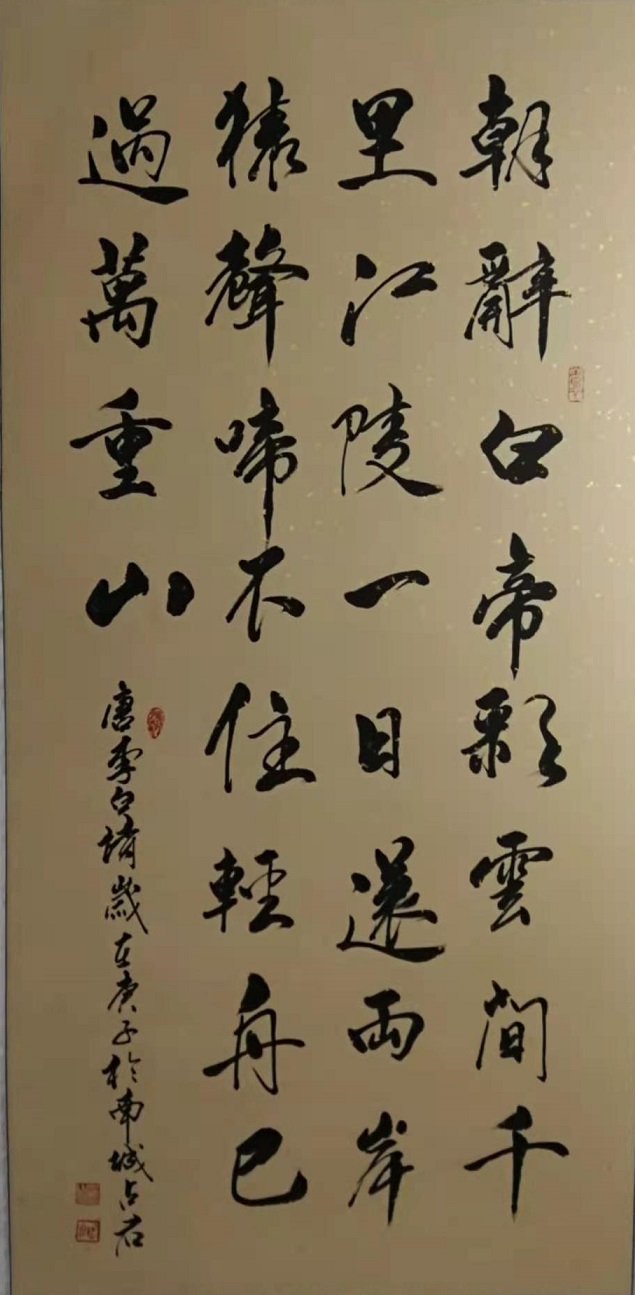 朝辭白帝彩雲間千
里江陵一日還兩岸
猿聲啼不住輕舟已
過萬重山
唐李白詩歲在庚子於南城占君